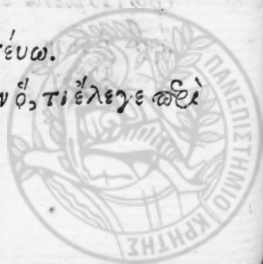 τεύω.
ν ὅ, τι ἔλεγε περὶ
ΠΑΝΕΠΙΣΤΗΜΙΟ ΚΡΗΤΗΣ